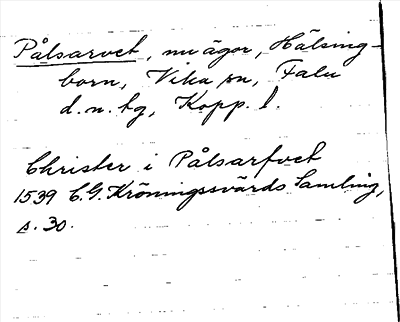 Pålsarvet, nu ägor, Hälsing-
born, Vika sn, Falu
d.n. tg, Kopp. l.
Christer i Pålsarfvet
1539 C.G. Kröningssvärds Samling,
s. 30.